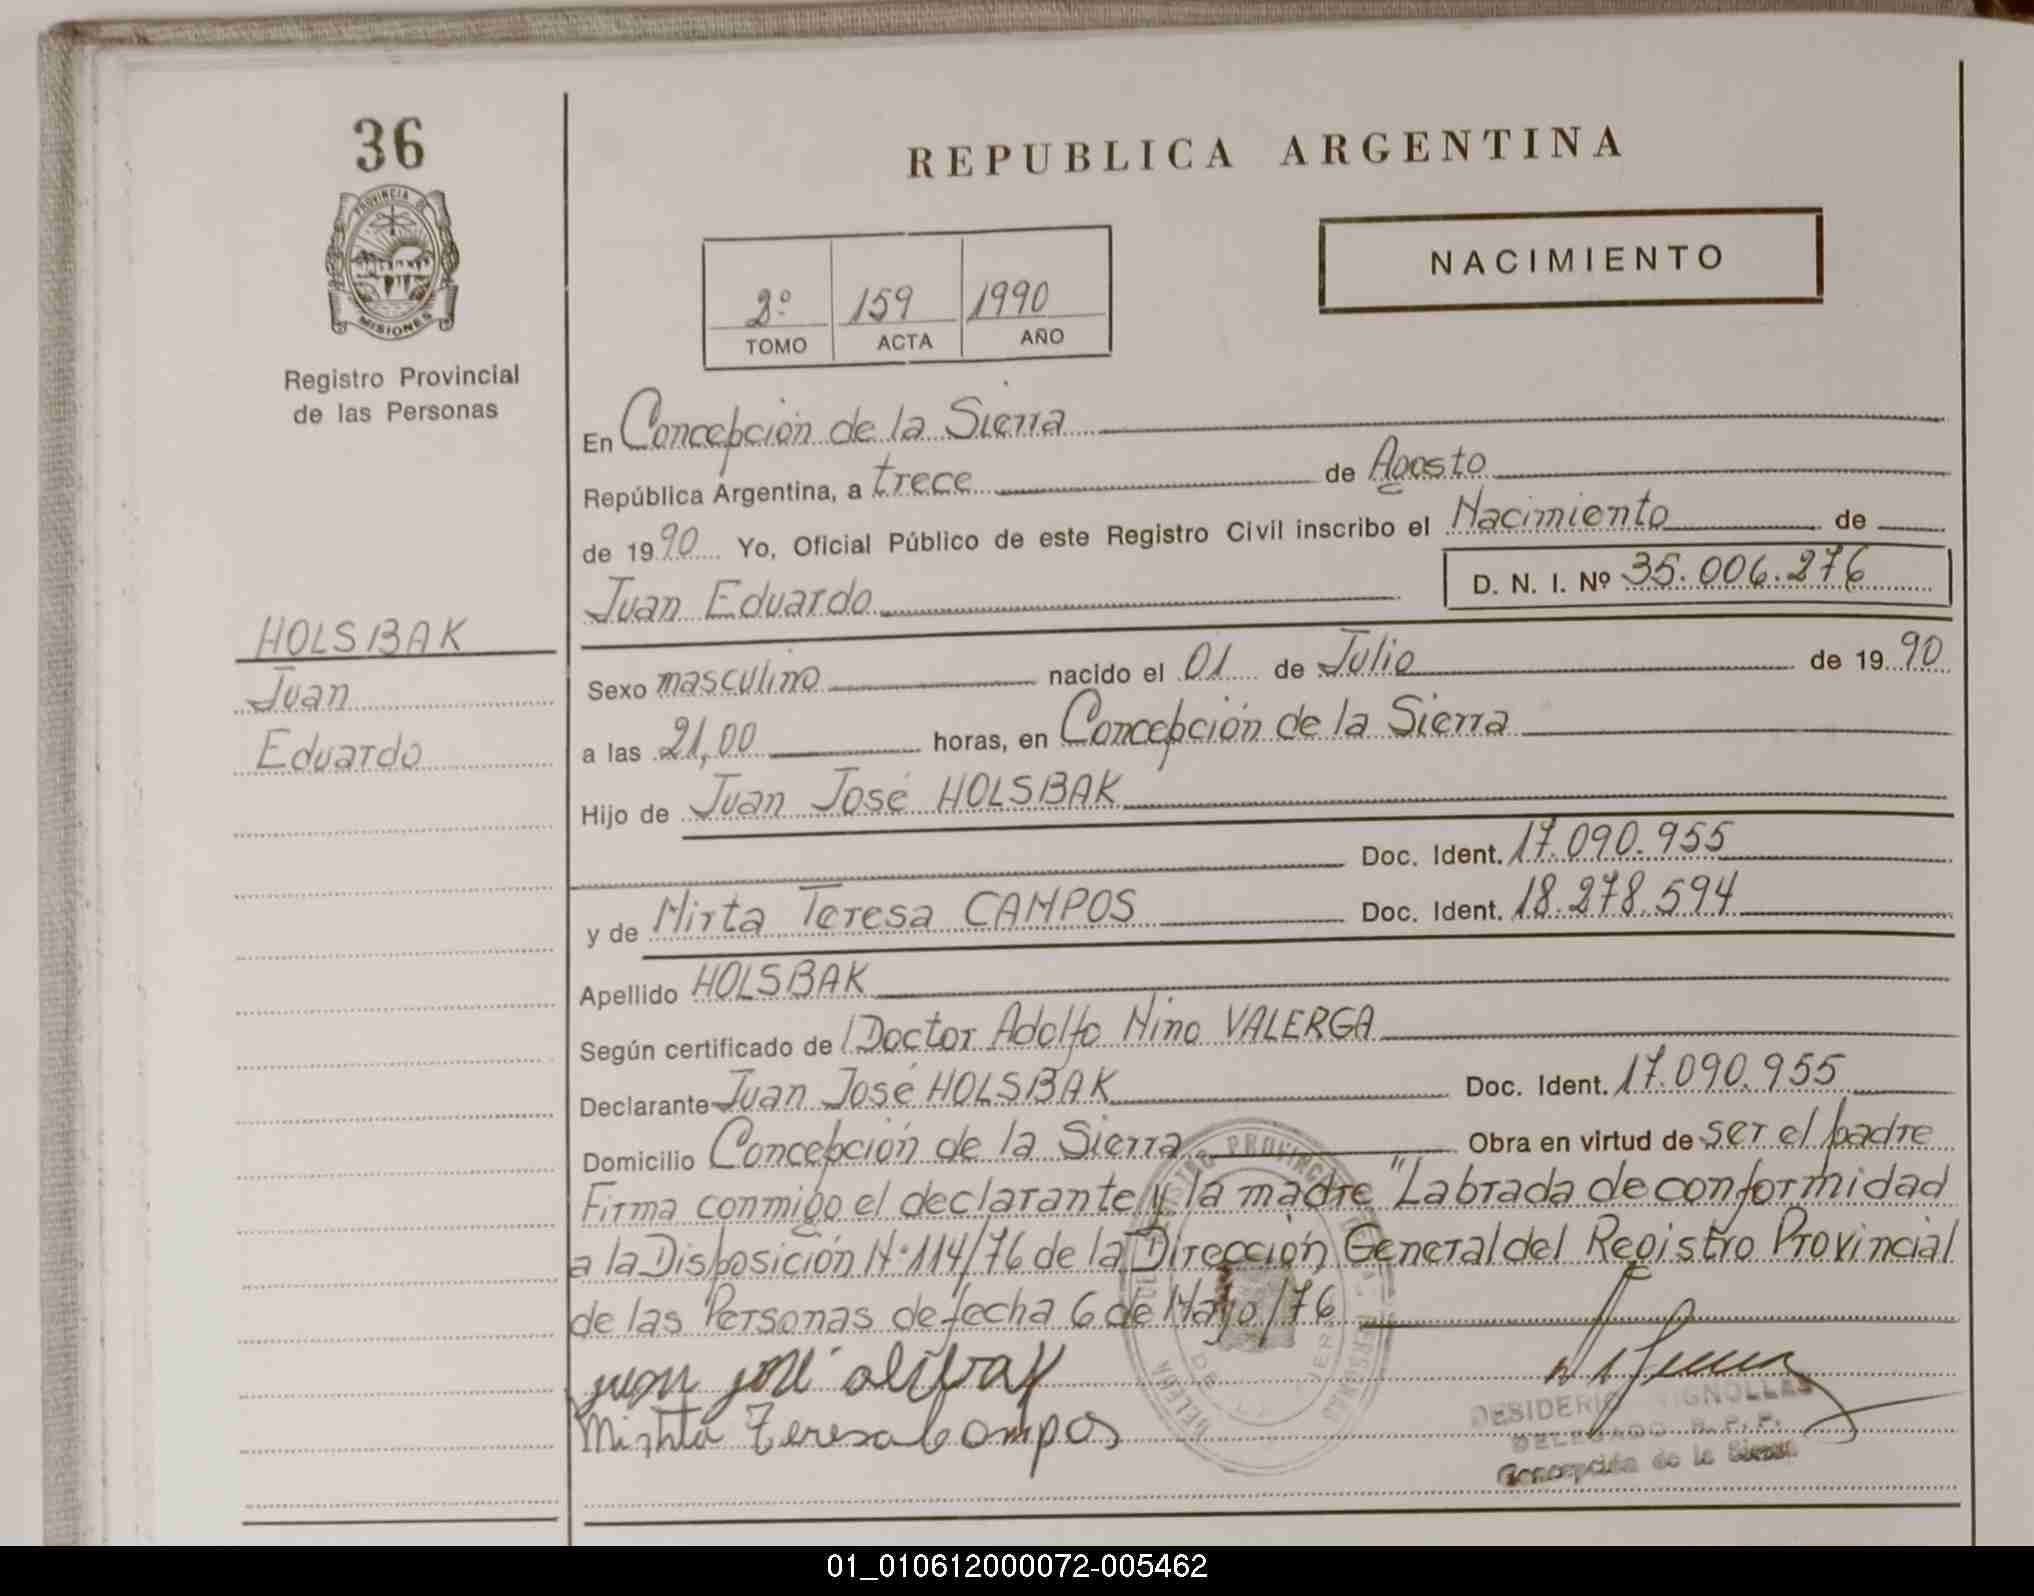 36
PROVINCIA DE
MISIONES
Registro Provincial
de las Personas
HOLSBAK
Juan
Eduardo
REPUBLICA ARGENTINA
NACIMIENTO
2º 159 1990
TOMO ACTA AÑO
En Concepción de la Sierra
República Argentina, a trece de Agosto
de 1990 Yo, Oficial Público de este Registro Civil inscribo el Nacimiento de
Juan Eduardo D. N. I. Nº 35.006.276
Sexo masculino nacido el 01 de Julio de 1990
a las 21,00 horas, en Concepción de la Sierra
Hijo de Juan José HOLSBAK
Doc. Ident. 17.090.955
y de Mirta Teresa CAMPOS Doc. Ident. 18.278.594
Apellido HOLSBAK
Según certificado de Doctor Adolfo Nino VALERGA
Declarante Juan José HOLSBAK Doc. Ident. 17.090.955
Domicilio Concepción de la Sierra Obra en virtud de ser el padre
Firma conmigo el declarante y la madre "Labrada de conformidad
a la Disposición Nº 114/76 de la Dirección General del Registro Provincial
de las Personas de fecha 6 de Mayo/76
Juan José
Mirta Teresa Campos
DESIDERIO VIGNOLLES
DELEGADO R. P. P.
Concepción de la Sierra
01_010612000072-005462